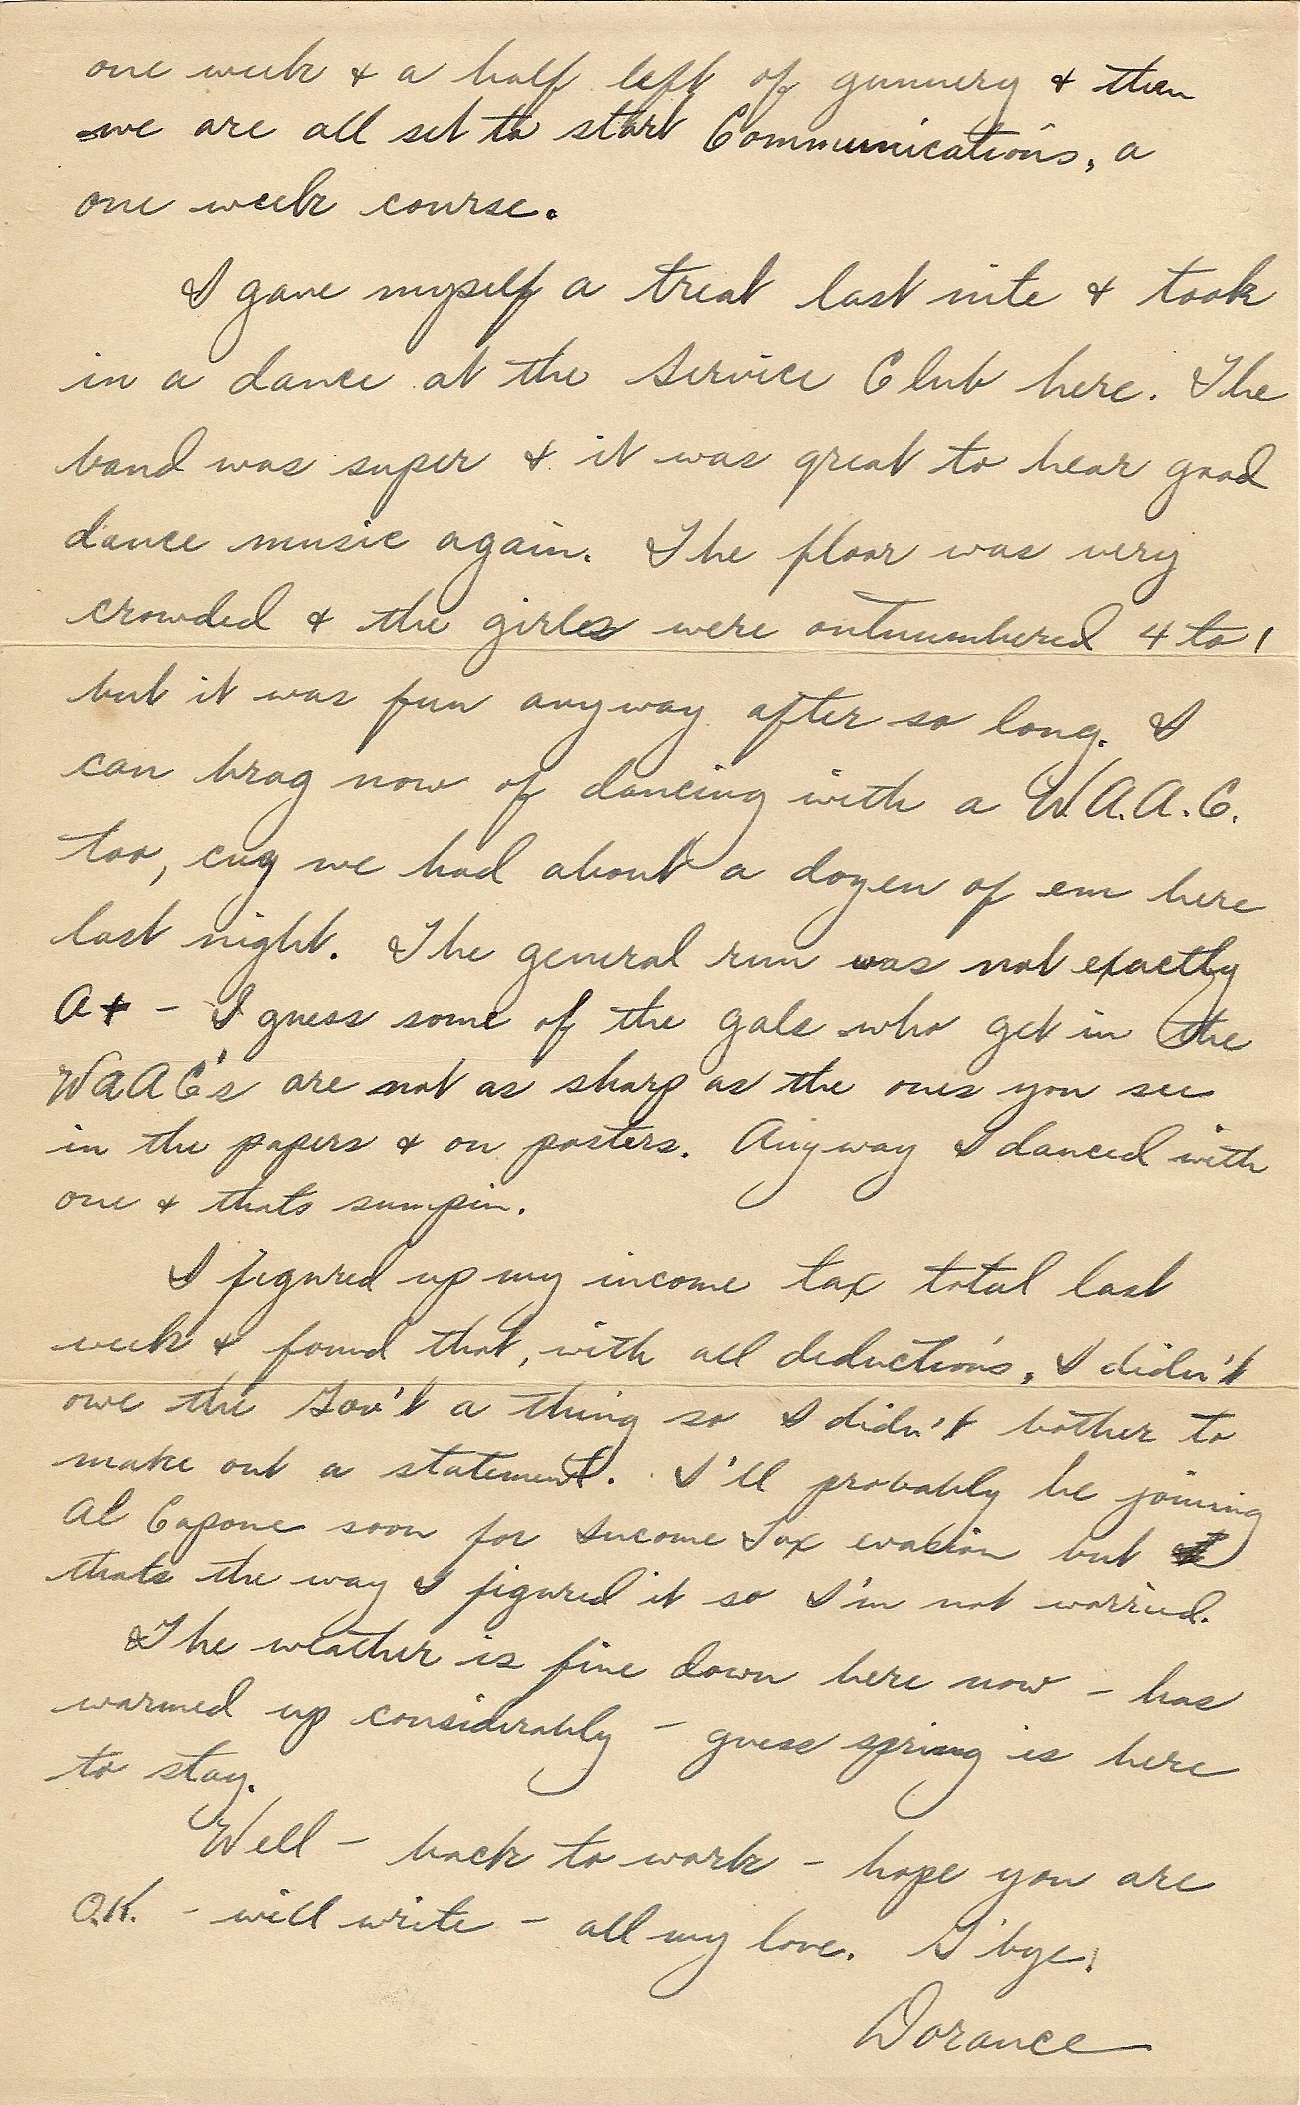 one week & a half left of gunnery & then
we are all set to start Communications, a
one week course.
I gave myself a treat last nite & took
in a dance at the Service Club here. The
band was super & it was great to hear good
dance music again. The floor was very
crowded & the girls were outnumbered 4 to 1
but it was fun anyway after so long. I
can brag now of dancing with a W.A.A.C.
too, cuz we had about a dozen of em here
last night. The general run was not exactly
A+ - I guess some of the gals who get in the
WAAC's are not as sharp as the ones you see
in the papers & on posters. Anyway I danced with
one & thats sumpin.
I figured up my income tax total last
week & found that, with all deductions, I didn't
owe the Gov't a thing so I didn't bother to
make out a statement. I'll probably be joining
Al Capone soon for Income Tax evasion but
thats the way I figured it so I'm not worried.
The weather is fine down here now - has
warmed up considerably - guess spring is here
to stay.
Well - back to work - hope you are
O.K. - will write - all my love. G'bye.
Dorance